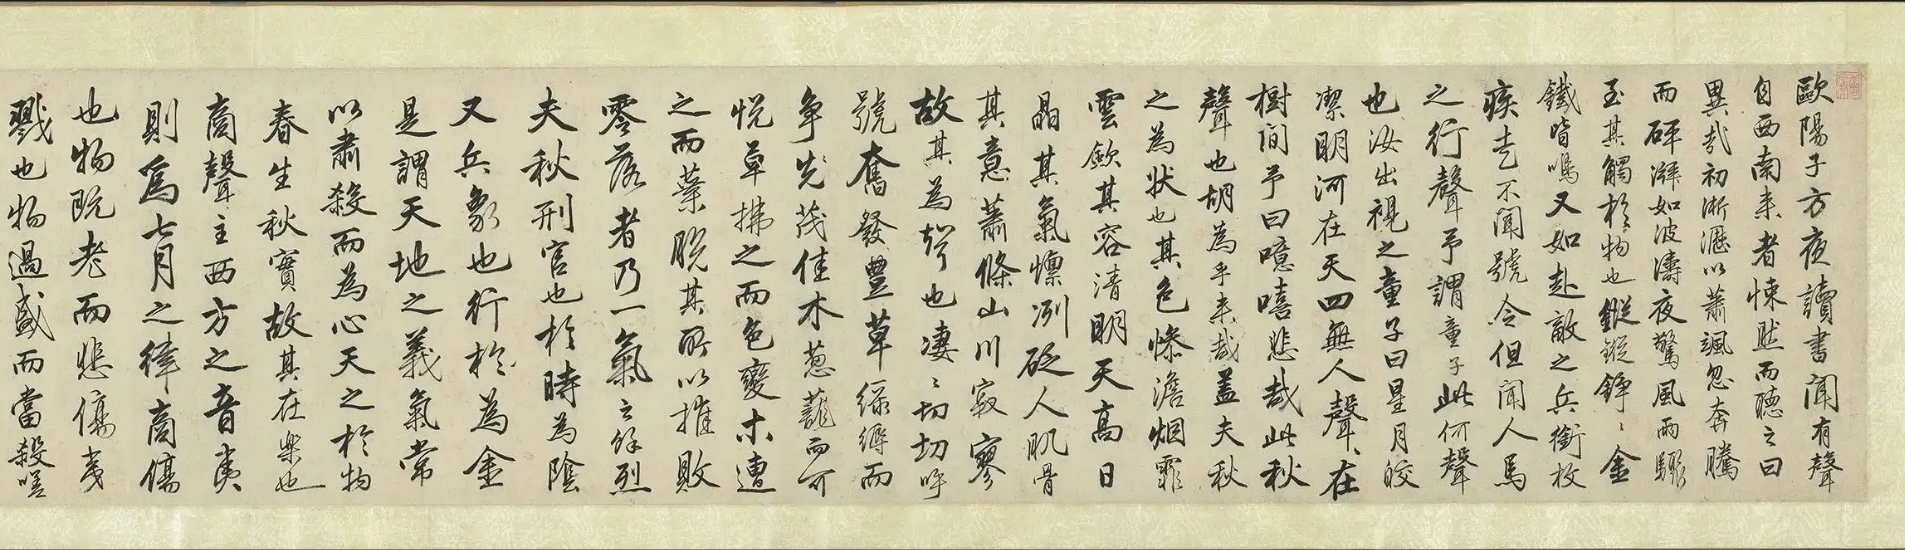 歐陽子方夜讀書聞有聲
自西南来者悚然而聽之曰
異哉初淅瀝以蕭颯忽奔騰
而砰湃如波濤夜驚風雨驟
至其觸於物也鏦鏦錚〻金
鐵皆鳴又如赴敵之兵銜枚
疾走不聞號令但聞人馬
之行聲予謂童子此何聲
也汝出視之童子曰星月皎
潔明河在天四無人聲〻在
樹間予曰噫嘻悲哉此秋
聲也胡為乎来哉蓋夫秋
之為狀也其色慘澹烟霏
雲歛其容清明天高日
晶其氣慄冽砭人肌骨
其意蕭條山川寂寥
故其為聲也凄〻切切呼
號奮發豐草綠縟而
争先茂佳木葱蘢而可
悅草拂之而色變木遭
之而葉脫其所以摧敗
零落者乃一氣之餘烈
夫秋刑官也於時為陰
又兵象也行於為金
是謂天地之義氣常
以肅殺而為心天之於物
春生秋實故其在樂也
商聲主西方之音夷
則為七月之律商傷
也物既老而悲傷夷
戮也物過盛而當殺嗟